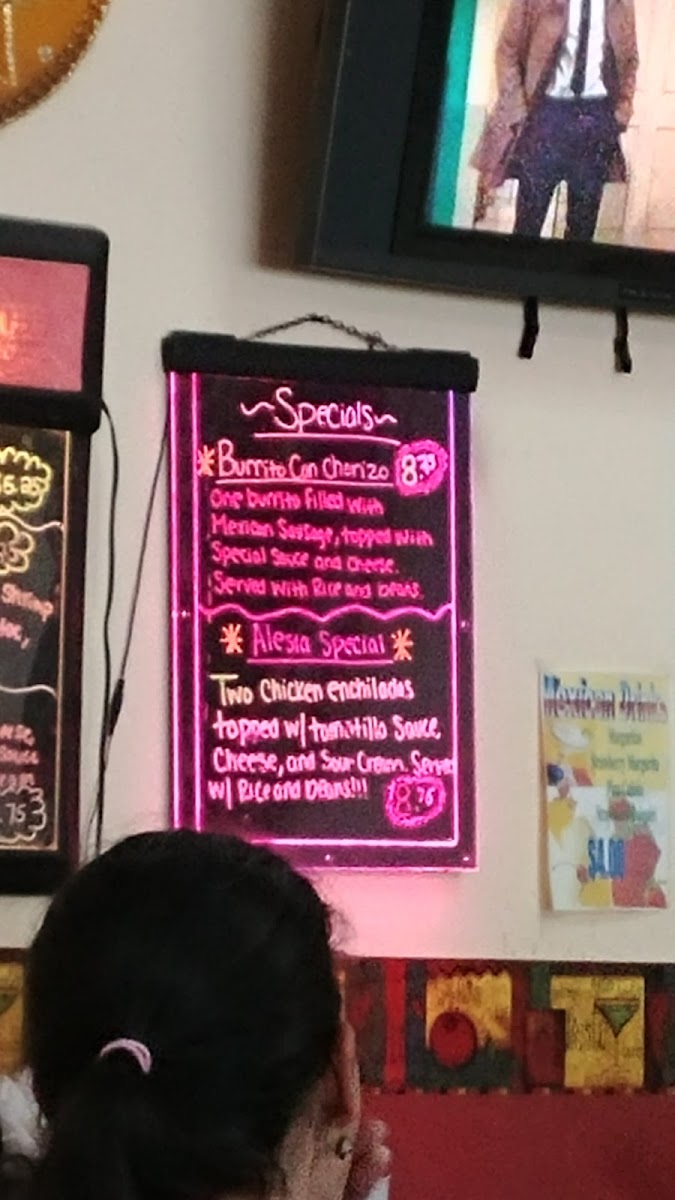 ~Specials~
*Burrito Con Chorizo 8.75
One burrito filled with
Mexican Sausage, topped with
Special Sauce and Cheese.
Served with Rice and beans.
* Alesia Special *
Two Chicken enchiladas
topped w/ tomitillo Sauce,
Cheese, and Sour Cream. Served
w/ Rice and beans!!! 8.75
$6.25
Shrimp
.75
Mexican Drinks
Margaritas
Strawberry Margarita
$4.00